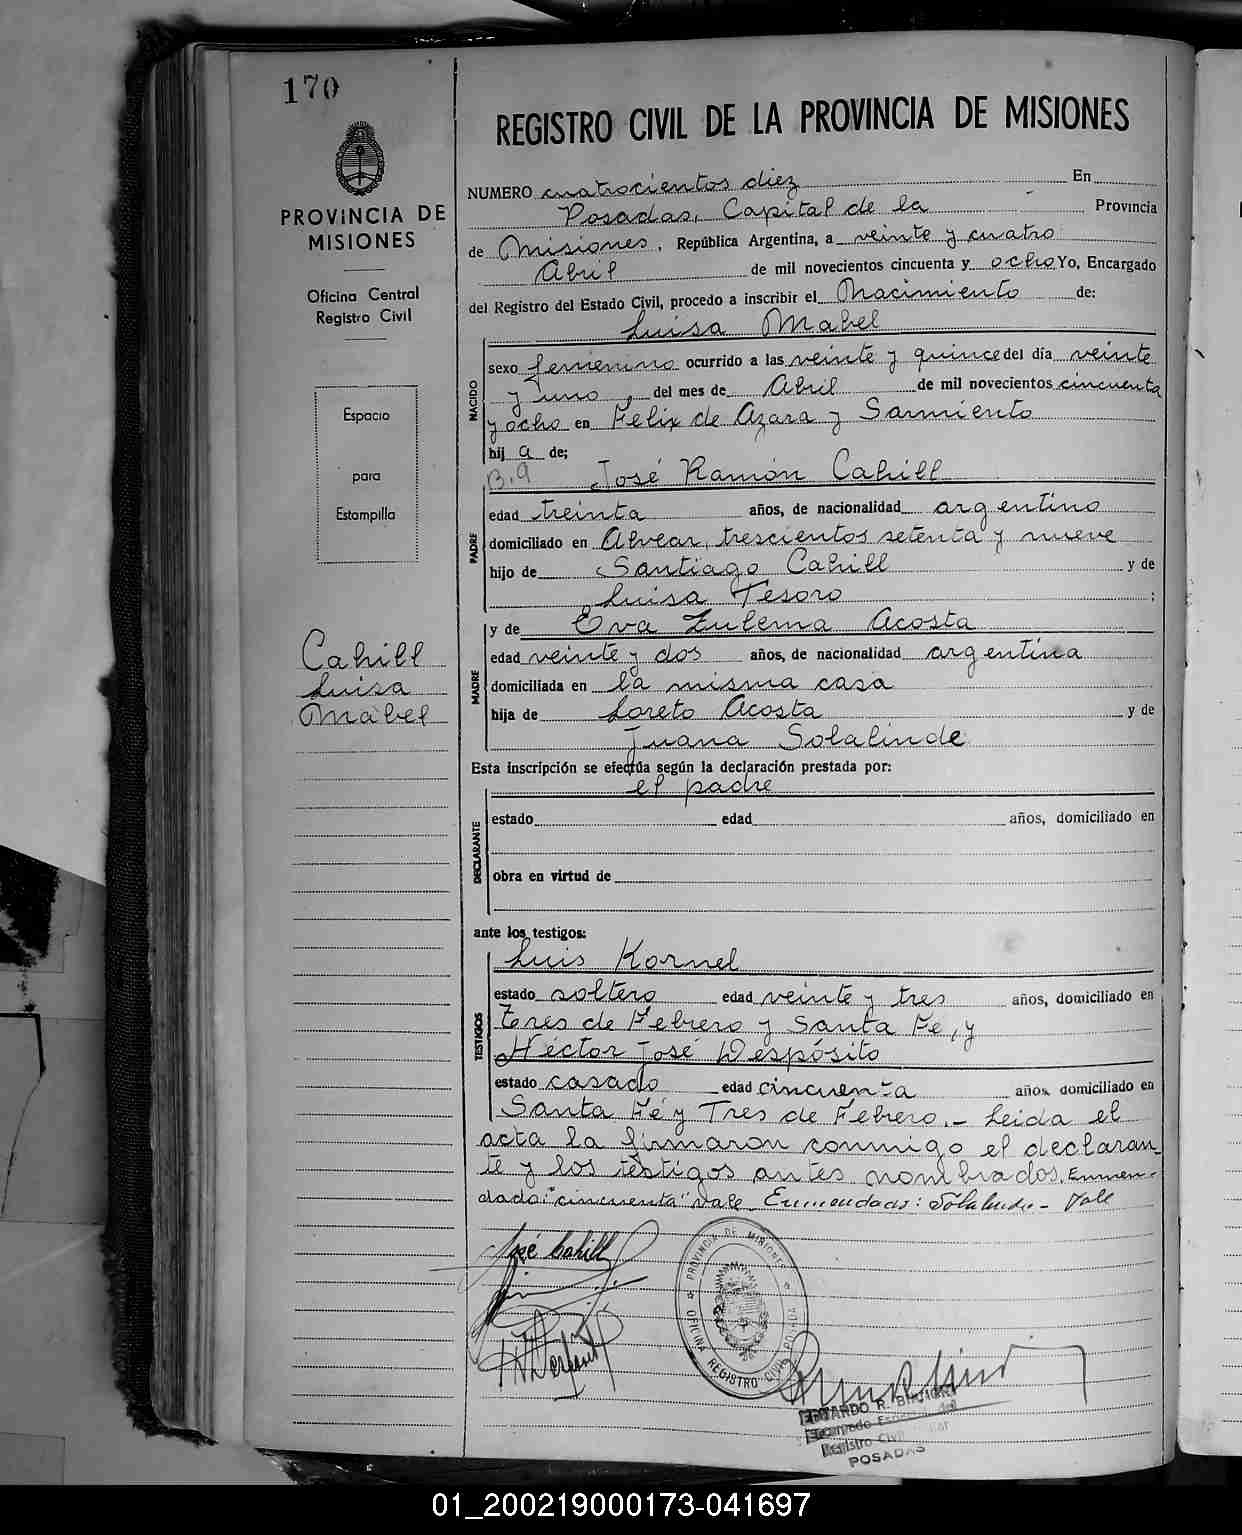 170
PROVINCIA DE
MISIONES
Oficina Central
Registro Civil
Espacio
para
Estampilla
Cahill
Luisa
Mabel
REGISTRO CIVIL DE LA PROVINCIA DE MISIONES
NUMERO cuatrocientos diez En
Posadas, Capital de la Provincia
de Misiones, República Argentina, a veinte y cuatro
Abril de mil novecientos cincuenta y ocho Yo, Encargado
del Registro del Estado Civil, procedo a inscribir el Nacimiento de:
Luisa Mabel
NACIDO
sexo femenino ocurrido a las veinte y quince del día veinte
y uno, del mes de Abril de mil novecientos cincuenta
y ocho en Felix de Azara y Sarmiento
hij a de;
B.9 José Ramón Cahill
PADRE
edad treinta años, de nacionalidad argentino
domiciliado en Alvear, trescientos setenta y nueve
hijo de Santiago Cahill y de
Luisa Tesoro ;
y de Eva Zulema Acosta
MADRE
edad veinte y dos años, de nacionalidad argentina
domiciliada en la misma casa
hija de Loreto Acosta y de
Juana Solalinde
Esta inscripción se efectúa según la declaración prestada por:
el padre
DECLARANTE
estado edad años, domiciliado en
obra en virtud de
ante los testigos:
Luis Kornel
TESTIGOS
estado soltero edad veinte y tres años, domiciliado en
Tres de Febrero y Santa Fe, y
Héctor José Despósito
estado casado edad cincuenta años, domiciliado en
Santa Fé y Tres de Febrero.- Leida el
acta la firmaron conmigo el declaran_
te y los testigos antes nombrados. Enmen-
dado: "cincuenta" vale. Enmendado: Solalinde - Vale
José Cahill
PROVINCIA DE MISIONES
OFICINA REGISTRO CIVIL POSADAS
Registro Civil
POSADAS
01_200219000173-041697